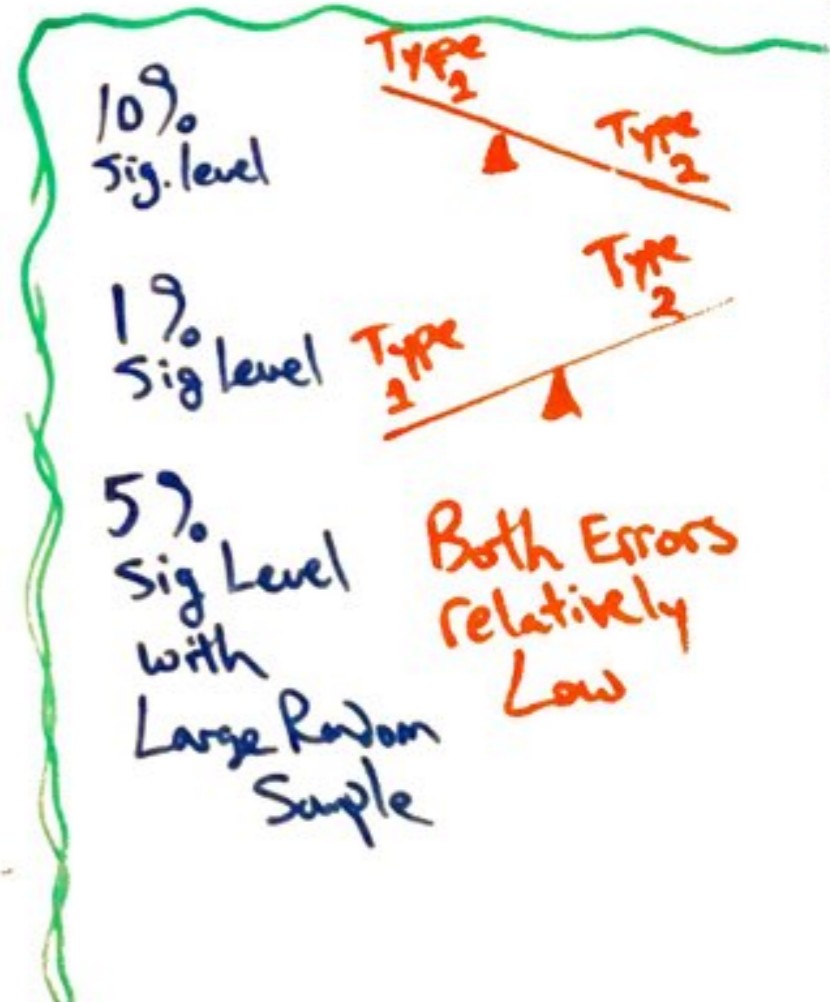 10%
Sig. level
Type
1
Type
2
1%
Sig Level
Type
1
Type
2
5%
Sig Level
with
Large Random
Sample
Both Errors
relatively
Low